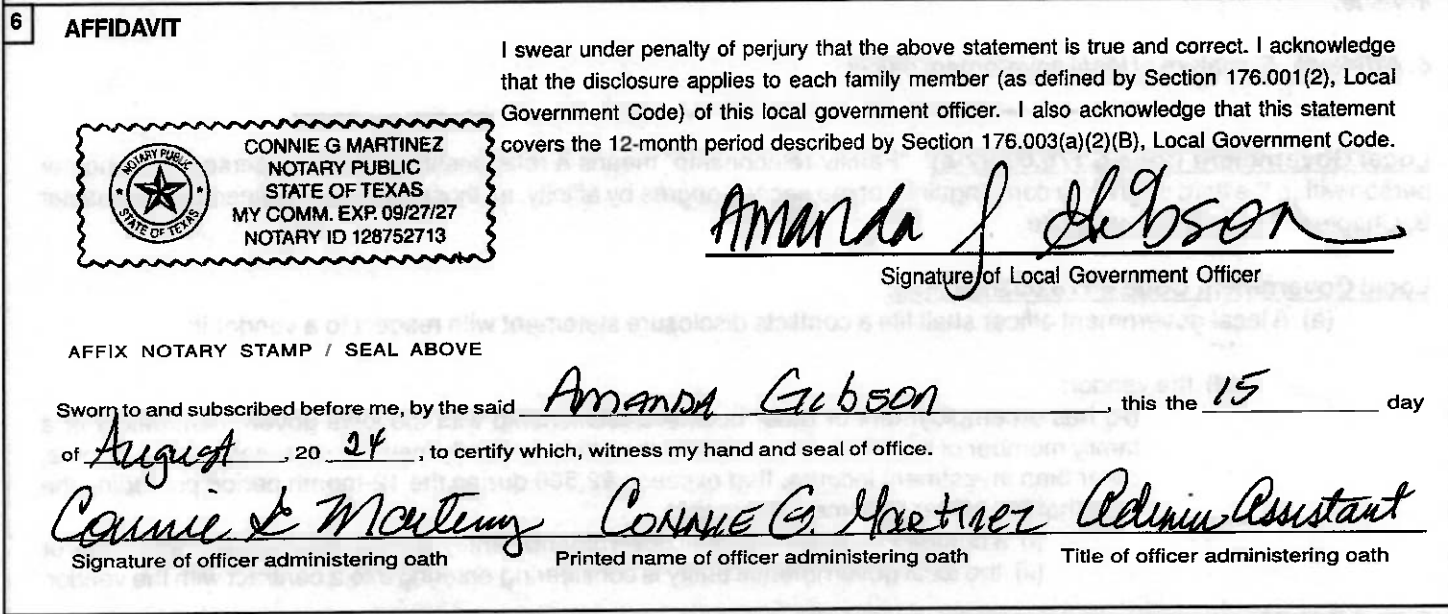 6
AFFIDAVIT
I swear under penalty of perjury that the above statement is true and correct. I acknowledge
that the disclosure applies to each family member (as defined by Section 176.001(2), Local
Government Code) of this local government officer. I also acknowledge that this statement
covers the 12-month period described by Section 176.003(a)(2)(B), Local Government Code.
NOTARY PUBLIC
STATE OF TEXAS
CONNIE G MARTINEZ
NOTARY PUBLIC
STATE OF TEXAS
MY COMM. EXP. 09/27/27
NOTARY ID 128752713
Amanda J Gibson
Signature of Local Government Officer
AFFIX NOTARY STAMP / SEAL ABOVE
Sworn to and subscribed before me, by the said Amanda Gibson, this the 15 day
of August, 20 24, to certify which, witness my hand and seal of office.
Connie G Martinez CONNIE G Martinez Admin Assistant
Signature of officer administering oath Printed name of officer administering oath Title of officer administering oath